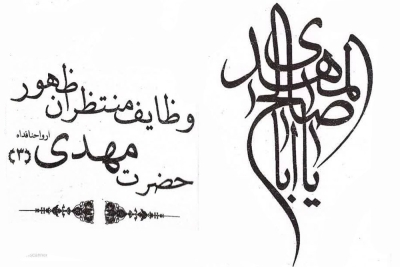 یا اباصالح المهدی
وظایف منتظران ظهور
حضرت مهدی ارواحنافداه
(۳)